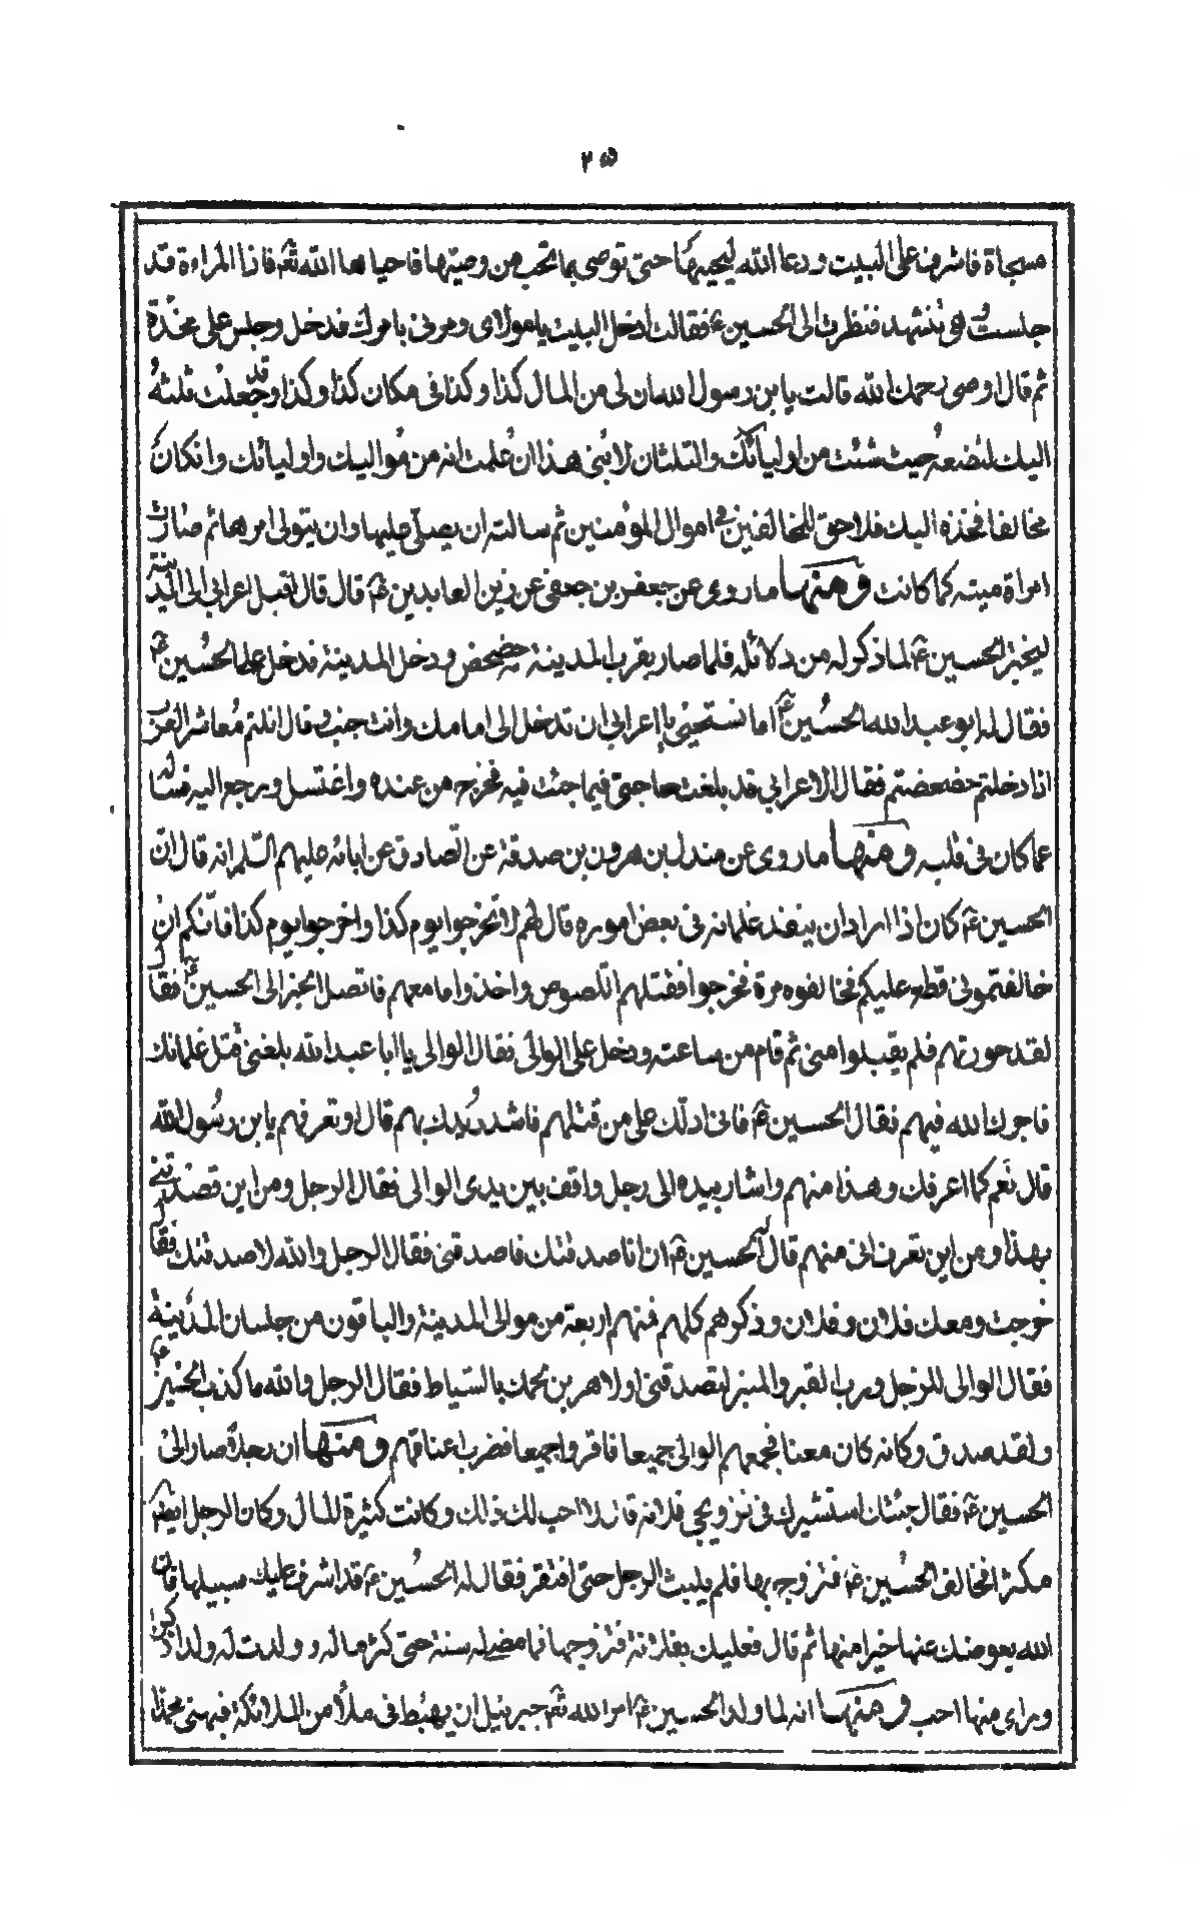 ٢٥
مسجاة فاشرف على البيت ودعا الله ليحييها حتى توصى بما تحب من وصيتها فاحياها الله تعم فاذا المراءة قد
جلست وهى تتشهد فنظرت الى الحسين عم فقالت ادخل البيت يا مولاى ومرنى بامرك فدخل وجلس على مخدة
ثم قال اوصى يرحمك الله قالت يا بن رسول الله ان لى من المال كذا وكذا فى مكان كذا وكذا وقد جعلت ثلثه
اليك لتضعه حيث شئت من اوليائك والثلثان لابنى هذا ان علمت انه من مواليك واوليائك وان كان
مخالفا فخذه اليك فلا حق للمخالفين فى اموال المؤمنين ثم سالته ان يصلى عليها وان يتولى امرها ثم صارت
امراة ميته كما كانت ومنها ما روى عن جعفر بن جعفى عن زين العابدين عم قال قال اقبل اعرابى الى المدينة
ليخبر الحسين عم لما ذكر له من دلائله فلما صار بقرب المدينة خضخض ودخل المدينة فدخل على الحسين عم
فقال له ابو عبد الله الحسين عم اما تستحيى يا اعرابى ان تدخل الى امامك وانت جنب وقال انتم معاشر العرب
اذا دخلتم خضخضتم فقال الاعرابى قد بلغت حاجتى فيما جئت فيه فخرج من عنده واغتسل ورجع اليه فساله
عما كان فى قلبه ومنها ما روى عن مندل بن هرون بن صدقة عن الصادق عن ابائه عليهم السلم انه قال ان
الحسين عم كان اذا اراد ان ينفذ غلمانه فى بعض اموره قال لهم لا تخرجوا يوم كذا واخرجوا يوم كذا فانكم ان
خالفتمونى قطع عليكم فخالفوه مرة فخرجوا فقتلهم اللصوص واخذوا ما معهم فاتصل الخبر الى الحسين عم فقال
لقد حذرتهم فلم يقبلوا منى ثم قام من ساعته ودخل على الوالى فقال الوالى يا ابا عبد الله بلغنى قتل غلمانك
فاجرك الله فيهم فقال الحسين عم فانى ادلك على من قتلهم فاشدد يديك بهم قال او تعرفهم يا بن رسول الله
قال نعم كما اعرفك وهذا منهم واشار بيده الى رجل واقف بين يدى الوالى فقال الرجل ومن اين قصدتنى
بهذا ومن اين تعرف انى منهم قال له الحسين عم ان انا صدقتك فاصدقنى فقال الرجل والله لاصدقنك فقال
خرجت ومعك فلان وفلان وذكرهم كلهم فمنهم اربعة من موالى المدينة والباقون من جلسان المدينة
فقال الوالى للرجل ورب القبر والمنبر لتصدقنى اولاهربن لحمك بالسياط فقال الرجل والله ما كذب الحسين عم
ولقد صدق وكانه كان معنا فجمعهم الوالى جميعا فاقروا جميعا فضرب اعناقهم ومنها ان رجلا صار الى
الحسين عم فقال جئتك استشيرك فى تزويجى فلانه قال لا احب لك ذلك وكانت كثيرة المال وكان الرجل ايضا
مكثرا فخالف الحسين عم فتزوج بها فلم يلبث الرجل حتى افتقر فقال له الحسين عم قد اشرف عليك سبيلها فان
الله يعوضك عنها خيرا منها ثم قال فعليك بفلانة فتزوجها فما مضى له سنة حتى كثر ماله وولدت له ولدا ذكرا
وراى منها ما احب ومنها انه لما ولد الحسين عم امر الله تعم جبرئيل ان يهبط فى ملأ من الملائكة فيهنى محمدا